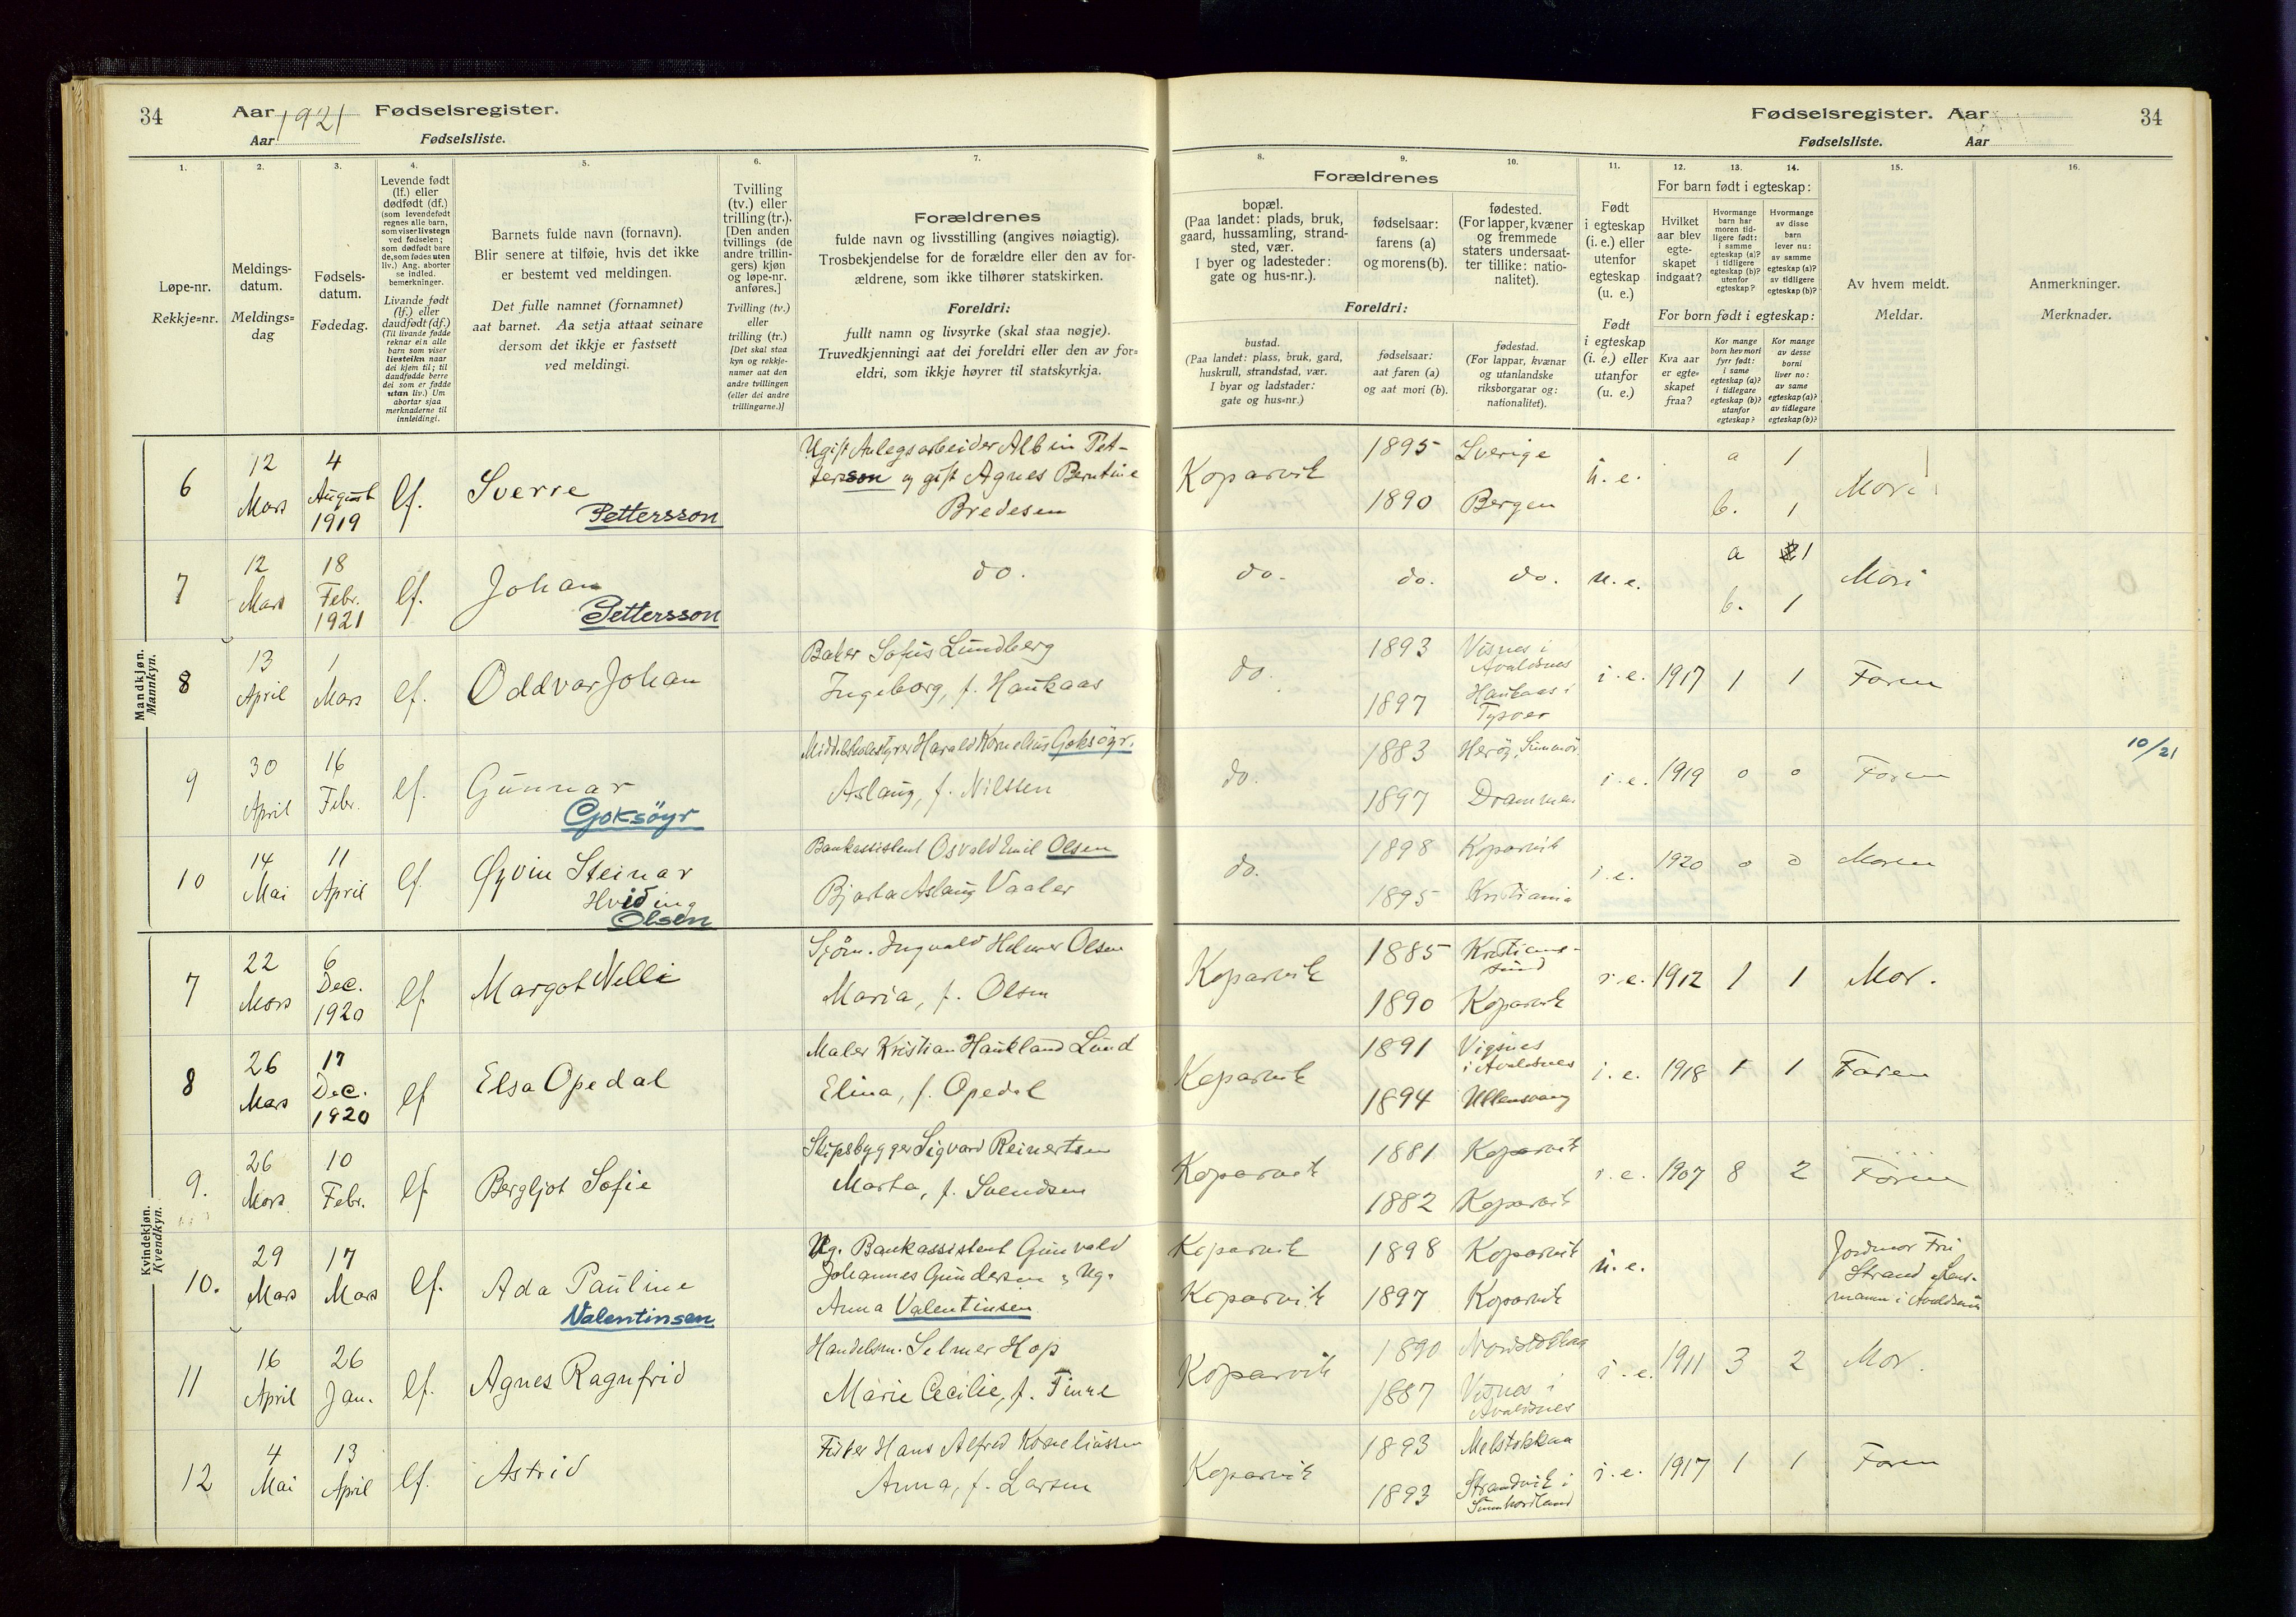 34
Aar 1921 Fødselsregister.
Aar
Fødselsliste.
1.
2.
3.
4.
5.
6.
7.
Løpe-nr.
Rekkje=nr.
Meldings-
datum.
Meldings=
dag
Fødsels-
datum.
Fødedag.
Levende født
(lf.) eller
dødfødt (df.)
(som levendefødt
regnes alle barn,
som viser livstegn
ved fødselen;
som dødfødt bare
de, som fødes uten
liv.) Ang. aborter
se indled.
bemerkninger.
Livande født
(lf.) eller
daudfødt (df.)
(Til livande fødde
reknar ein alle
barn som viser
livsteikn naar
dei kjem til; til
daudfødde berre
dei som er fødde
utan liv.) Um
abortar sjaa
merknaderne til
innleidingi.
Barnets fulde navn (fornavn).
Blir senere at tilføie, hvis det ikke
er bestemt ved meldingen.
Det fulle namnet (fornamnet)
aat barnet. Aa setja attaat seinare
dersom det ikkje er fastsett
ved meldingi.
Tvilling
(tv.) eller
trilling (tr.).
[Den anden
tvillings (de
andre trillin-
gers) kjøn
og løpe-nr.
anføres.]
Tvilling (tv.)
eller
trilling (tr.)
[Det skal staa
kyn og rekkje-
numer aat den
andre tvillingen
(eller dei andre
trillingarne.)]
Forældrenes
fulde navn og livsstilling (angives nøiagtig).
Trosbekjendelse for de forældre eller den av for-
ældrene, som ikke tilhører statskirken.
Foreldri:
fullt namn og livsyrke (skal staa nøgje).
Truvedkjenningi aat dei foreldri eller den av for=
eldri, som ikkje høyrer til statskyrkja.
Fødselsregister. Aar
34
Fødselsliste.
Aar
8.
9.
10.
11.
12.
13.
14.
15.
16.
Forældrenes
bopæl.
(Paa landet: plads, bruk,
gaard, hussamling, strand-
sted, vær.
I byer og ladesteder:
gate og hus-nr.).
fødselsaar:
farens (a)
og morens (b).
fødested.
(For lapper, kvæner
og fremmede
staters undersaat-
ter tillike: natio-
nalitet).
Foreldri:
bustad.
(Paa landet: plass, bruk, gard,
huskrull, strandstad, vær.
I byar og ladstader:
gate og hus=nr.)
fødselsaar:
aat faren (a)
og aat mori (b).
fødestad.
(For lappar, kvænar
og utanlandske
riksborgarar og:
nationalitet).
Født
i egteskap
(i. e.) eller
utenfor
egteskap
(u. e.)
Født
i egteskap
(i. e.) eller
utanfor
(u. e.)
For barn født i egteskap:
Hvilket
aar blev
egte-
skapet
indgaat?
Hvormange
barn har
moren tid-
ligere født:
i samme
egteskap (a)?
i tidligere
egteskap (b)?
utenfor
egteskap?
Hvormange
av disse
barn
lever nu:
av samme
egteskap (a)?
av tidligere
egteskap (b)?
For born født i egteskap:
Kva aar
er egte=
skapet
fraa?
Kor mange
born hev mori
fyrr født:
i same
egteskap (a)?
i tidlegare
egteskap (b)?
utanfor
egteskap?
Kor mange
av desse
borni
liver no:
av same
egteskap (a)?
av tidlegare
egteskap (b)?
Av hvem meldt.
Meldar.
Anmerkninger.
Merknader.
Mandkjøn.
Mannkyn.
6
12
Mars
4
August
1919
lf.
Sverre
Pettersson
Ugift Anlegsarbeider Albin Pet-
tersson og gift Agnes Berntine
Bredesen
Koparvik
1895
1890
Sverige
Bergen
u. e.
a 1
b. 1
Mori
7
12
Mars
18
Febr.
1921
lf.
Johan
Pettersson
do.
do.
do.
do.
u. e.
a 1
b. 1
Mori
8
13
April
1
Mars
lf.
Oddvar Johan
Baker Sofus Lundberg
Ingeborg, f. Haukaas
do.
1893
1897
Visnes i
Avaldsnes
Haukaas i
Tysvær
i. e.
1917
1
1
Faren
9
30
April
16
Febr.
lf.
Gunnar
Goksöyr
Middelskolestyrer Harald Kornelius Goksöyr.
Aslaug, f. Nilssen
do.
1883
1897
Heröy, Sunnmör
Drammen
i. e.
1919
0
0
Faren
10/21
10
14
Mai
11
April
lf.
Øyvin Steinar
Hviding
Olsen
Bankassistent Osvald Emil Olsen
Bjarta Aslaug Vaaler
do.
1898
1895
Koparvik
Kristiania
i. e.
1920
0
0
Moren
Kvindekjøn.
Kvendkyn.
7
22
Mars
6
Dec.
1920
lf.
Margot Nelli
Sjøm. Ingvald Helmer Olsen
Maria, f. Olsen
Koparvik
1885
1890
Kristians-
sund
Koparvik
i. e.
1912
1
1
Mor.
8
26
Mars
17
Dec.
1920
lf
Elsa Opedal
Maler Kristian Haukland Lund
Elina, f. Opedal
Koparvik
1891
1894
Vigsnes
i Avaldsnes
Ullensvang
i. e.
1918
1
1
Faren
9.
26
Mars
10
Febr.
lf.
Bergljot Sofie
Skipsbygger Sigvard Reinertsen
Marta, f. Svendsen
Koparvik
1881
1882
Koparvik
Koparvik
i. e.
1907
8
2
Faren
10.
29
Mars
17
Mars
lf.
Ada Pauline
Valentinsen
Ug. Bankassistent Gunvald
Johannes Gundersen & Ug.
Anna Valentinsen
Koparvik
Koparvik
1898
1897
Koparvik
Koparvik
u. e.
Jordmor Fru
Strand
i Avaldsnes
11
16
April
26
Jan.
lf.
Agnes Ragnfrid
Handelsm. Selmer Hop
Marie Cecilie, f. Finne
Koparvik
1890
1887
Visnes i
Avaldsnes
i. e.
1911
3
2
Mor.
12
4
Mai
13
April
lf.
Astrid
Fisker Hans Alfred Korneliussen
Anna, f. Larsen
Koparvik
1893
1893
Melstokkaa
Strandvik i
Sunnhordland
i. e.
1917
1
1
Faren